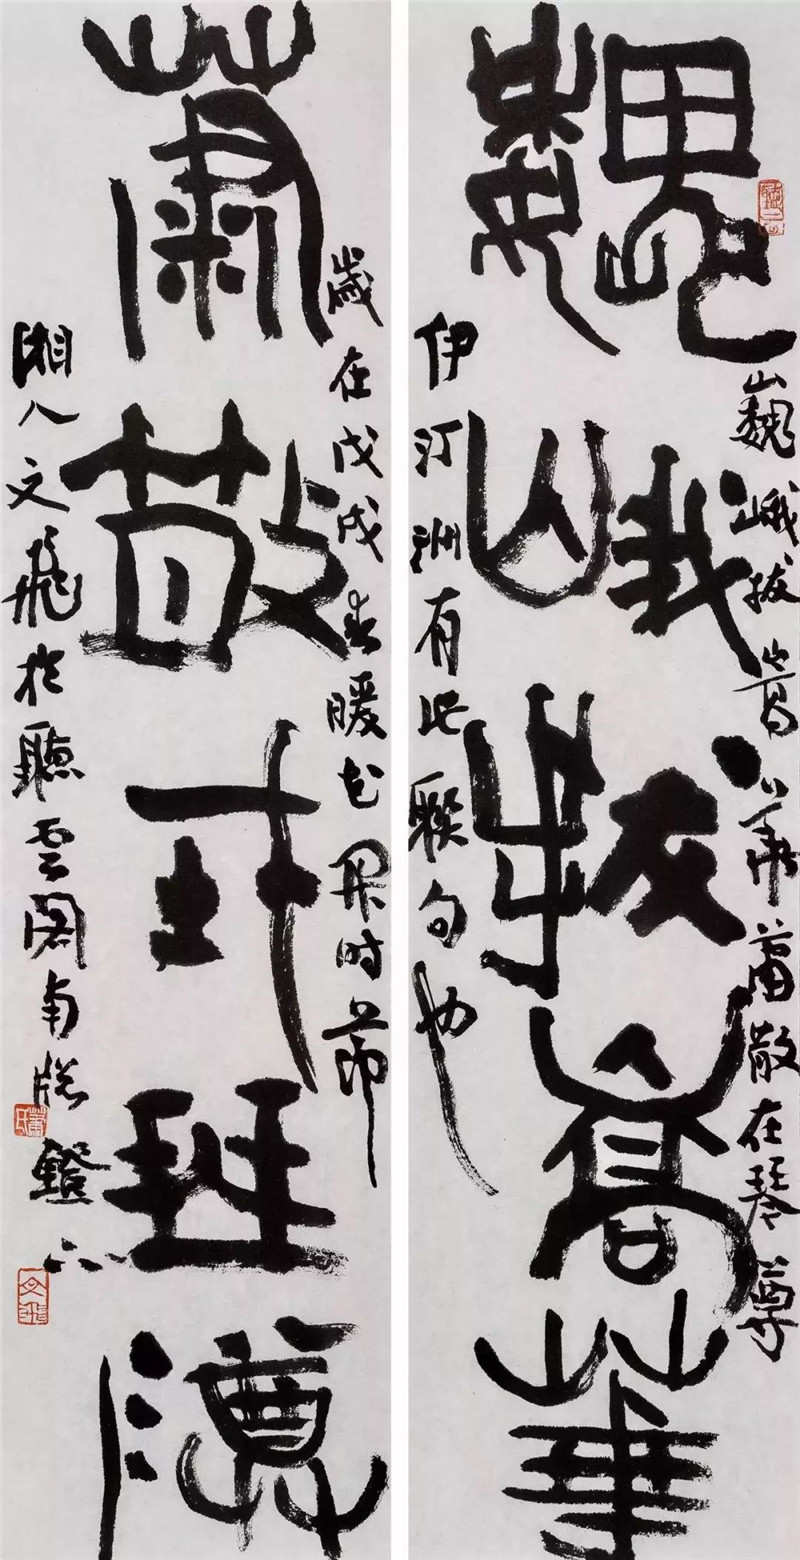 巍峨拔嵩華
巍峨拔嵩華蕭散在琴尊
伊汀洲有此聯句也
蕭散在琴尊
歲在戊戌春暖花開時節
湘人文飛於聽雲閣南牕鐙下
蕭氏
文飛